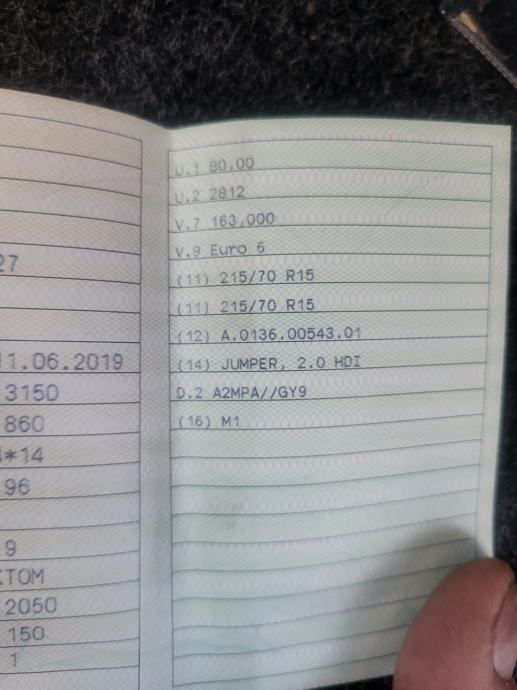 27
11.06.2019
3150
860
*14
96
9
TOM
2050
150
1
U.1 80,00
U.2 2812
V.7 163,000
V.9 Euro 6
(11) 215/70 R15
(11) 215/70 R15
(12) A.0136.00543.01
(14) JUMPER, 2.0 HDI
D.2 A2MPA//GY9
(16) M1